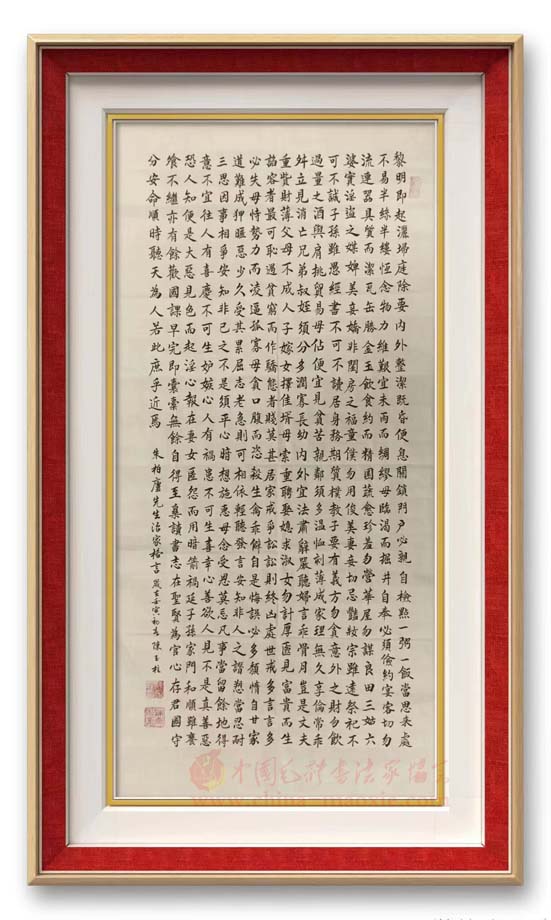 黎明即起灑埽庭除要内外整潔既昏便息關鎖門户必親自檢點一粥一飯當思来處
不易半絲半縷恒念物力維艱宜未雨而綢繆毋臨渴而掘井自奉必須儉約宴客切勿
流連器具質而潔瓦缶勝金玉飲食約而精園蔬愈珍羞勿營華屋勿謀良田三姑六
婆實淫盗之媒婢美妾嬌非閨房之福童僕勿用俊美妻妾切忌艷妝宗雖遠祭祀不
可不誠子孫雖愚經書不可不讀居身務期質樸教子要有義方勿貪意外之財勿飲
過量之酒與肩挑貿易毋佔便宜見貧苦親鄰須多温恤刻薄成家理無久享倫常乖
舛立見消亡兄弟叔姪須分多潤寡長幼内外宜法肅辭嚴聽婦言乖骨月豈是丈夫
重貲財薄父母不成人子嫁女擇佳壻毋索重聘娶媳求淑女勿計厚匳見富貴而生
諂容者最可恥遇貧窮而作驕態者賤莫甚居家戒爭訟訟則終凶處世戒多言言多
必失毋恃勢力而凌逼孤寡毋貪口腹而恣殺生禽乖僻自是悔誤必多頹惰自甘家
道難成狎暱惡少久受其累屈志老急則可相依輕聽發言安知非人之譖愬當忍耐
三思因事相爭安知非己之不是須平心暗想施惠毋念受恩莫忘凡事當留餘地得
意不宜往人有喜慶不可生妒嫉心人有禍患不可生喜幸心善欲人見不是真善惡
恐人知便是大惡見色而起淫心報在妻女匿怨而用暗箭禍延子孫家門和順雖饔
飱不繼亦有餘歡國課早完即囊橐無餘自得至真讀書志在聖賢為官心存君國守
分安命順時聽天為人若此庶乎近焉 朱柏廬先生治家格言 歲在壬寅初春陳玉柱
中國毛體書法家協會
www.china maoxie.com